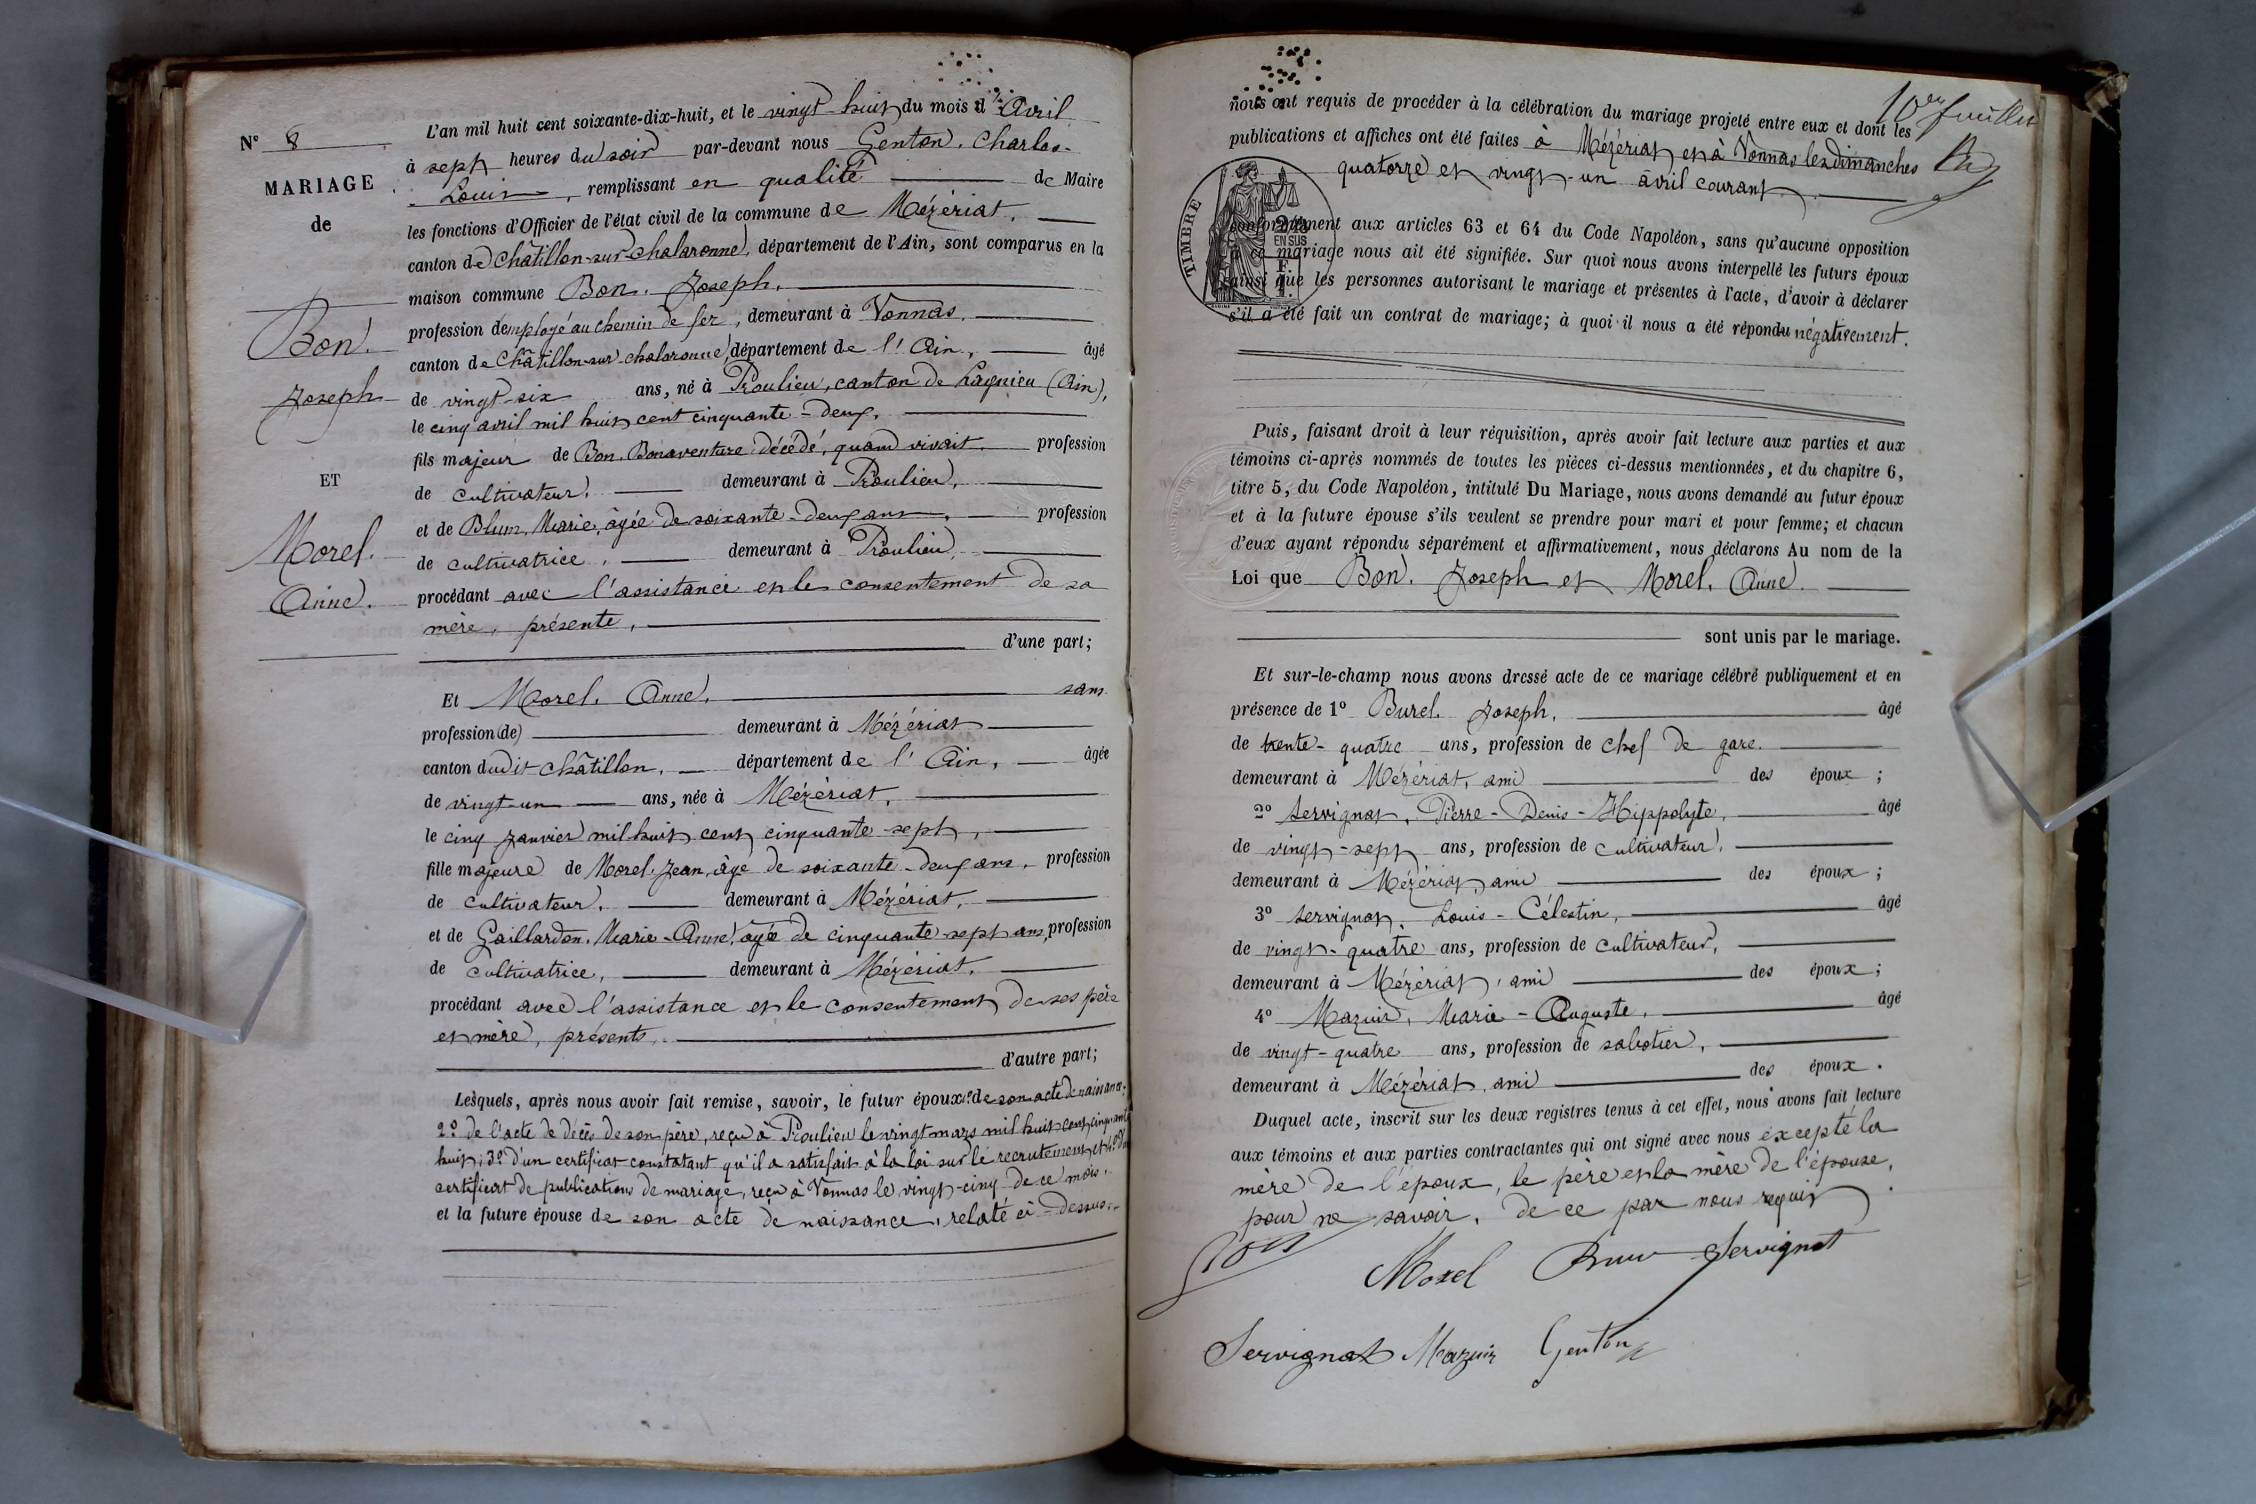 N° 8
MARIAGE
de
Bon.
Joseph
ET
Morel.
Anne.
L'an mil huit cent soixante-dix-huit, et le vingt-huit du mois d'Avril
à sept heures du soir par-devant nous Genton. Charles-
Louis, remplissant en qualité de Maire
les fonctions d'Officier de l'état civil de la commune de Mézériat,
canton de Châtillon-sur-Chalaronne, département de l'Ain, sont comparus en la
maison commune Bon. Joseph,
profession d'employé au chemin de fer, demeurant à Vonnas,
canton de Châtillon-sur-chalaronne, département de l'Ain, âgé
de vingt-six ans, né à Proulieu, canton de Lagnieu (Ain),
le cinq avril mil huit cent cinquante-deux,
fils majeur de Bon. Bonaventure décédé, quand vivait, profession
de cultivateur, demeurant à Proulieu,
et de Blum, Marie, âgée de soixante-deux ans, profession
de cultivatrice, demeurant à Proulieu,
procédant avec l'assistance et le consentement de sa
mère, présente,
d'une part;
Et Morel. Anne, sans
profession (de) demeurant à Mézériat
canton dudit Châtillon, département de l'Ain, âgée
de vingt-un ans, née à Mézériat,
le cinq janvier mil huit cent cinquante-sept,
fille majeure de Morel. Jean, âgé de soixante-deux ans, profession
de cultivateur, demeurant à Mézériat,
et de Gaillardon. Marie-Anne, âgée de cinquante-sept ans, profession
de cultivatrice, demeurant à Mézériat,
procédant avec l'assistance et le consentement de ses père
et mère, présents,
d'autre part;
Lesquels, après nous avoir fait remise, savoir, le futur époux 1° de son acte de naissance;
2° de l'acte de décès de son père, reçu à Proulieu le vingt mars mil huit cent cinquante
huit; 3° d'un certificat constatant qu'il a satisfait à la loi sur le recrutement, et 4° d'un
certificat de publications de mariage, reçu à Vonnas le vingt-cinq de ce mois.
et la future épouse de son acte de naissance, relaté ci-dessus.
10e feuillet
nous ont requis de procéder à la célébration du mariage projeté entre eux et dont les
publications et affiches ont été faites à Mézériat et à Vonnas les dimanches
quatorze et vingt-un avril courant,
TIMBRE
2/10
EN SUS
conformément aux articles 63 et 64 du Code Napoléon, sans qu'aucune opposition
à ce mariage nous ait été signifiée. Sur quoi nous avons interpellé les futurs époux
ainsi que les personnes autorisant le mariage et présentes à l'acte, d'avoir à déclarer
s'il a été fait un contrat de mariage; à quoi il nous a été répondu négativement.
Puis, faisant droit à leur réquisition, après avoir fait lecture aux parties et aux
témoins ci-après nommés de toutes les pièces ci-dessus mentionnées, et du chapitre 6,
titre 5, du Code Napoléon, intitulé Du Mariage, nous avons demandé au futur époux
et à la future épouse s'ils veulent se prendre pour mari et pour femme; et chacun
d'eux ayant répondu séparément et affirmativement, nous déclarons Au nom de la
Loi que Bon. Joseph et Morel. Anne.
sont unis par le mariage.
Et sur-le-champ nous avons dressé acte de ce mariage célébré publiquement et en
présence de 1° Burel. Joseph, âgé
de trente-quatre ans, profession de chef de gare,
demeurant à Mézériat, ami des époux;
2° Servignat, Pierre-Denis-Hippolyte, âgé
de vingt-sept ans, profession de cultivateur,
demeurant à Mézériat, ami des époux;
3° Servignat. Louis-Célestin, âgé
de vingt-quatre ans, profession de cultivateur,
demeurant à Mézériat, ami des époux;
4° Mazuir, Marie-Auguste, âgé
de vingt-quatre ans, profession de sabotier,
demeurant à Mézériat, ami des époux.
Duquel acte, inscrit sur les deux registres tenus à cet effet, nous avons fait lecture
aux témoins et aux parties contractantes qui ont signé avec nous excepté la
mère de l'époux, le père et la mère de l'épouse,
pour ne savoir, de ce par nous requis
Bon
Morel
Servignat
Servignat Mazuir Genton